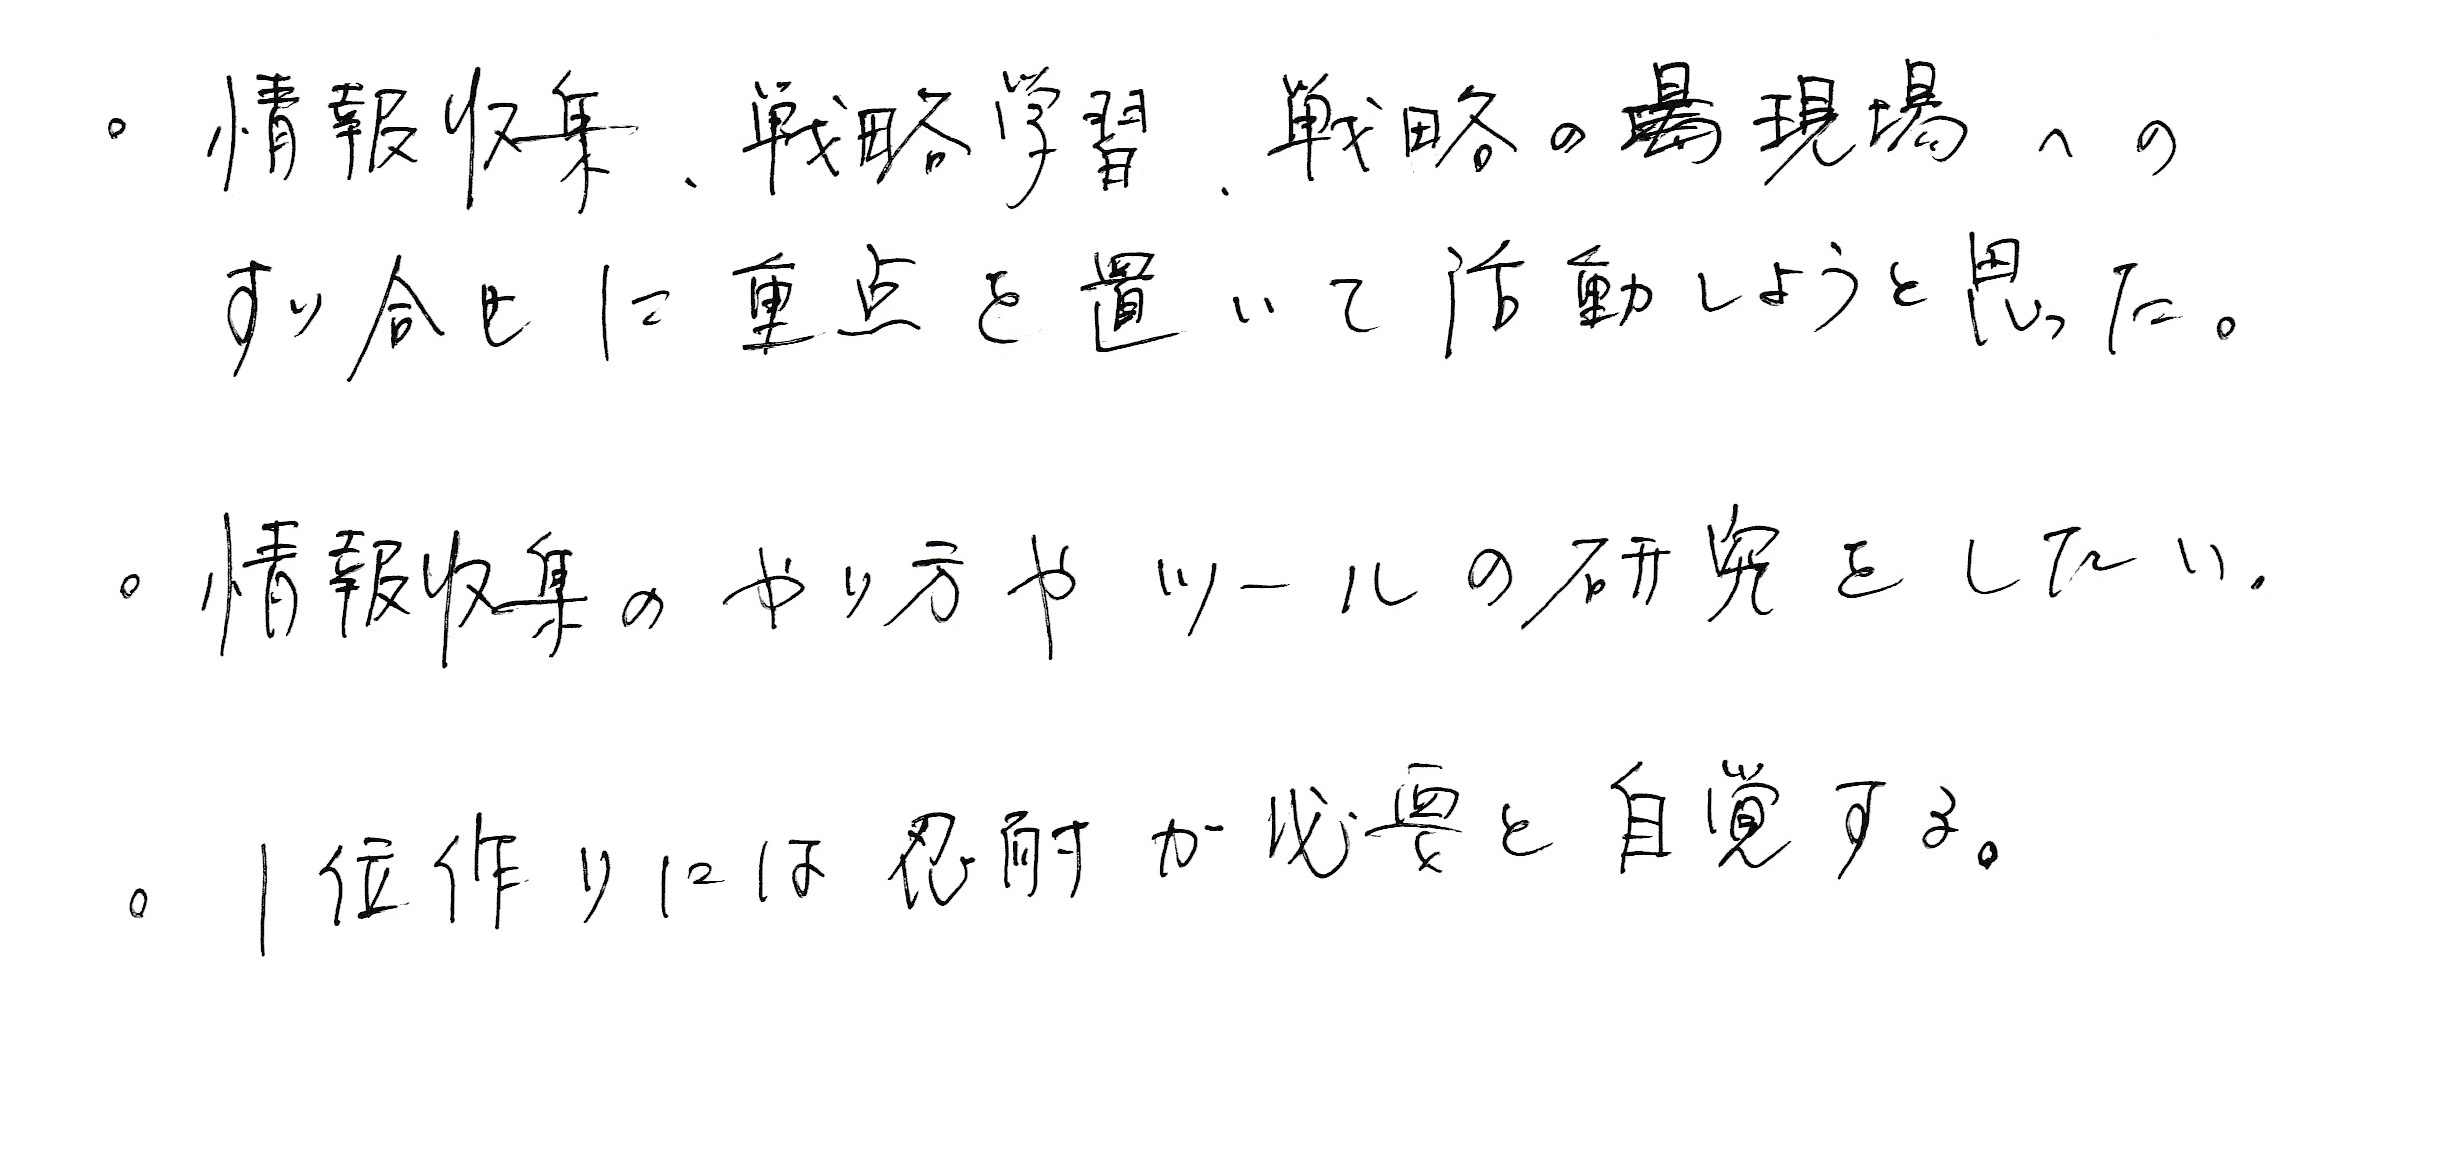 。情報収集、戦略学習、戦略の現場への
すり合せに重点を置いて活動しようと思った。
。情報収集のやり方やツールの研究をしたい.
。1位作りには忍耐が必要と自覚する。